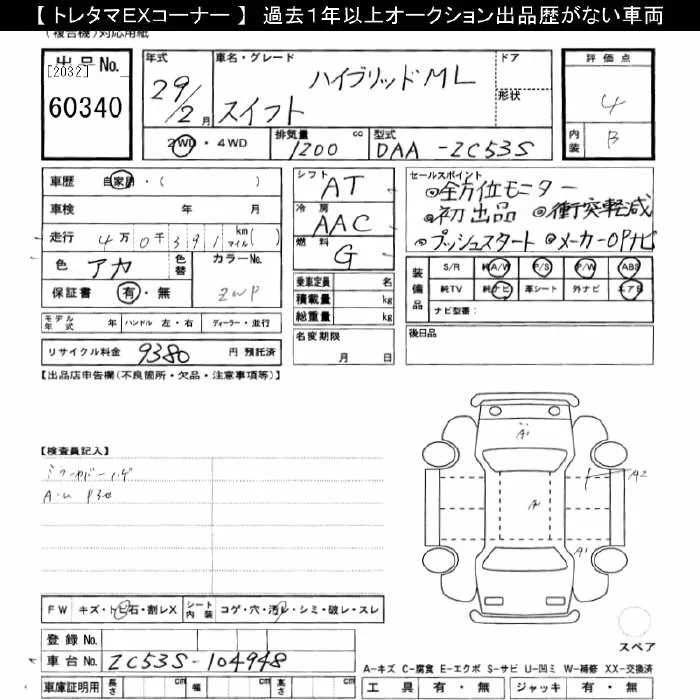 【 トレタマEXコーナー 】 過去1年以上オークション出品歴がない車両
(複合機)対応用紙
出品No.
[2032]
60340
年式
29/2月
車名・グレード
ハイブリッドML
スイフト
ドア
形状
評価点
4
内装
B
2WD・4WD
排気量 cc
1200
型式
DAA-ZC53S
車歴 自家用・( )
車検 年 月
走行 4万0千391 km マイル( )
色 アカ
色替
カラーNo.
ZWP
保証書 有・無
シフト
AT
冷房
AAC
燃料
G
乗車定員 名
積載量 kg
総重量 kg
名変期限
月 日
セールスポイント
◎全方位モニター
◎初出品 ◎衝突軽減
◎プッシュスタート ◎メーカーOPナビ
装備品
S/R 純A/W P/S P/W ABS
純TV 純ナビ 革シート 外ナビ エアB
ナビ型番:
後日品
モデル年式 年 ハンドル 左・右 ディーラー・並行
リサイクル料金 9380 円 預託済
【出品店申告欄(不良箇所・欠品・注意事項等)】
【検査員記入】
A1
A2
A1
FW キズ・トビ石・割レX
シート内装 コゲ・穴・汚レ・シミ・破レ・スレ
登録No.
車台No. ZC53S-104948
車庫証明用 長さ cm 幅 cm 高さ cm
スペア
A-キズ C-腐食 E-エクボ S-サビ U-凹ミ W-補修 XX-交換済
工具 有・無 ジャッキ 有・無